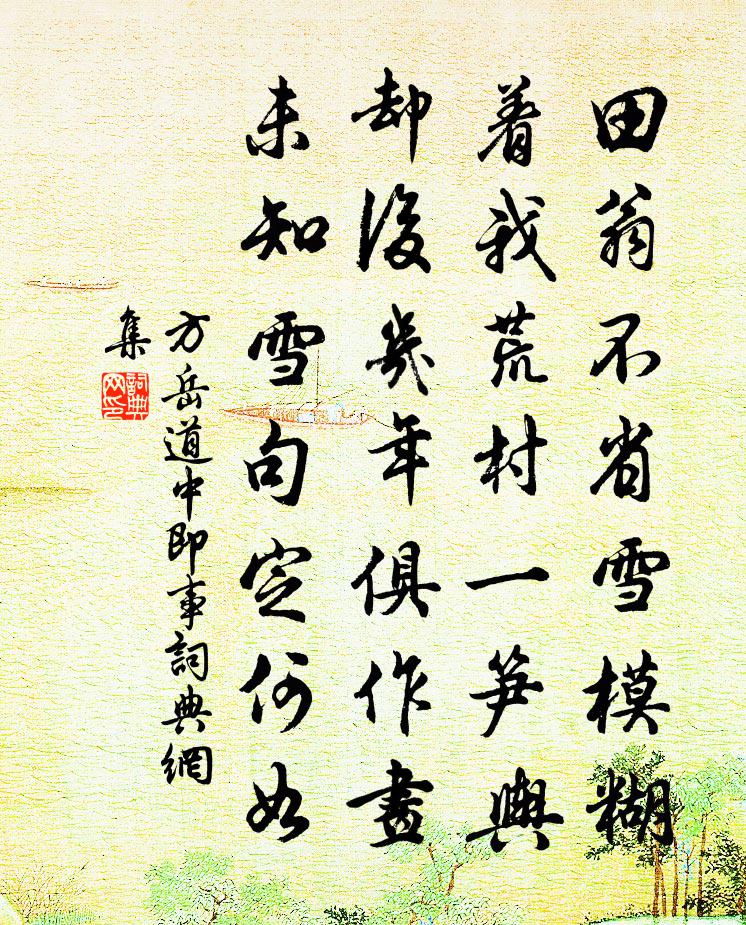 田翁不省雪模糊
着我荒村一笋輿
却後幾年俱作畫
未知雪句定何如
方岳道中即事詞典網
集
詞典
网印